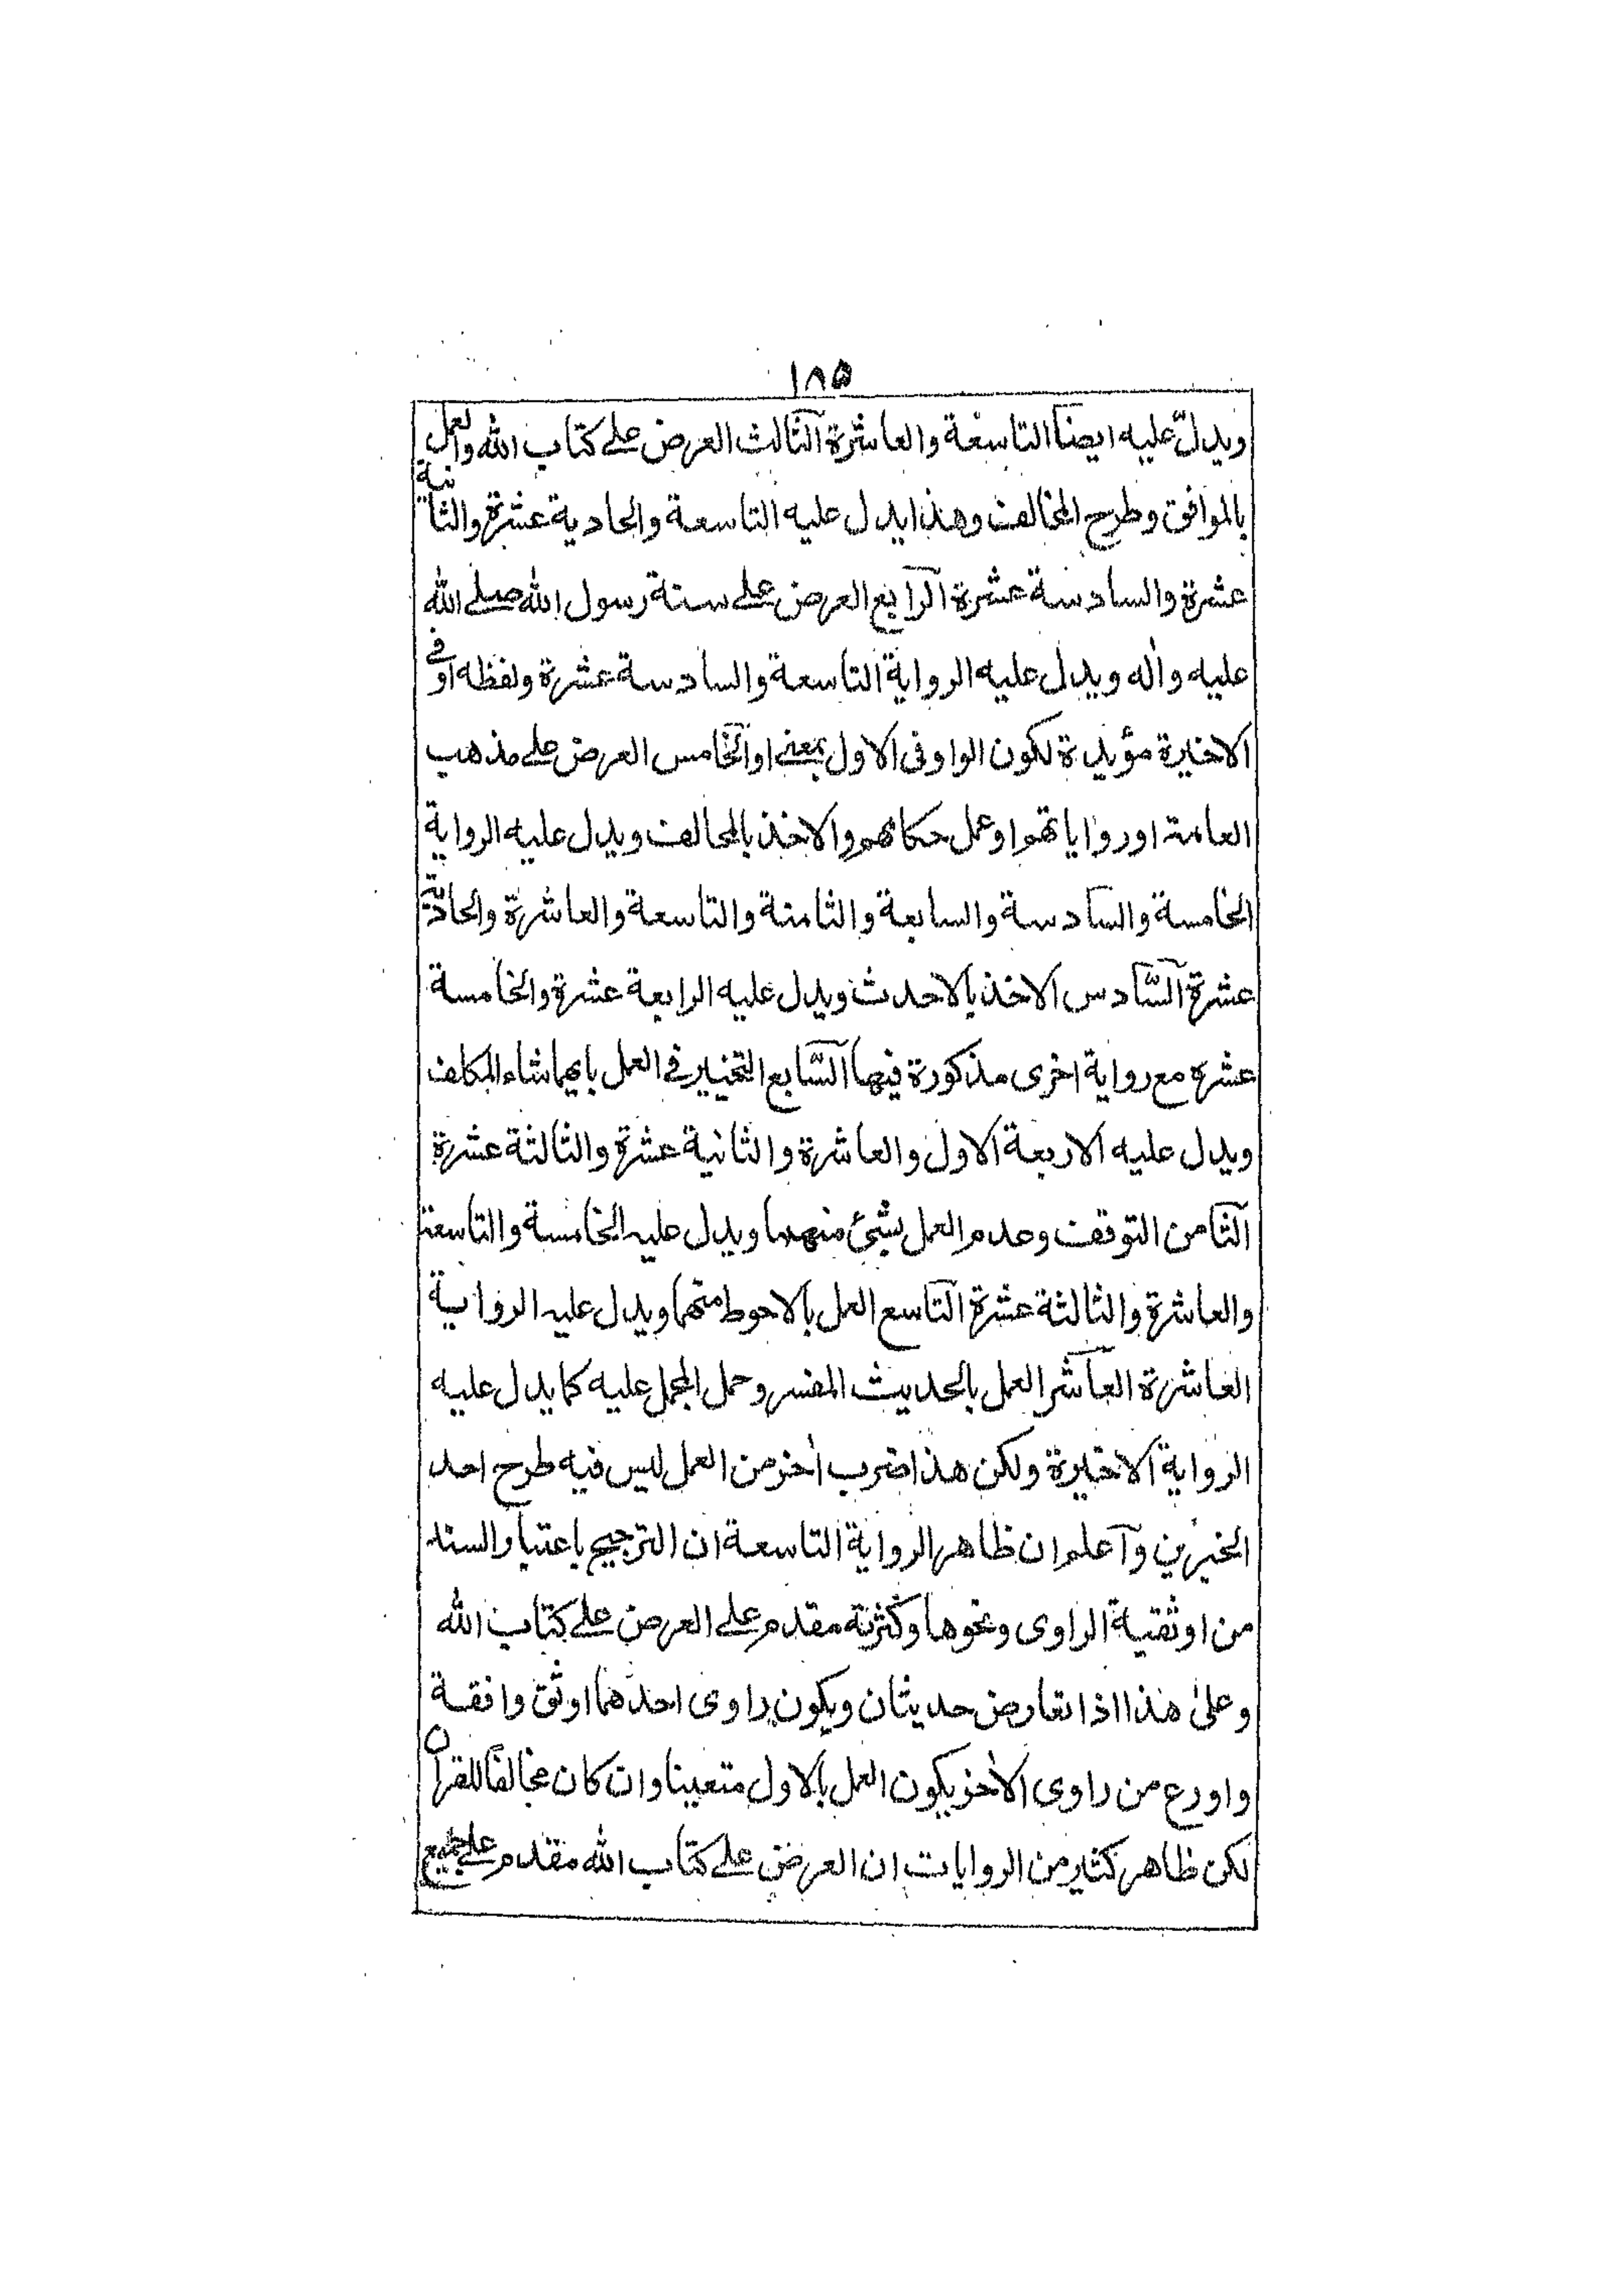 ١٨٥
ويدلّ عليه ايضا التاسعة والعاشرة الثالث العرض على كتاب الله والعمل
بالموافق وطرح المخالف وهذا يدل عليه التاسعة والحادية عشرة والثانية
عشرة والسادسة عشرة الرابع العرض على سنة رسول الله صلى الله
عليه واله ويدل عليه الرواية التاسعة والسادسة عشرة ولفظه او في
الاخيرة مؤيدة لكون الواو فى الاول بمعنى او الخامس العرض على مذهب
العامة او رواياتهم او عمل حكامهم والاخذ بالمخالف ويدل عليه الرواية
الخامسة والسادسة والسابعة والثامنة والتاسعة والعاشرة والحادية
عشرة السّادس الاخذ بالاحدث ويدل عليه الرابعة عشرة والخامسة
عشره مع رواية اخرى مذكورة فيها السّابع التخيير في العمل بايهما شاء المكلف
ويدل عليه الاربعة الاول والعاشرة والثانية عشرة والثالثة عشرة
الثامن التوقف وعدم العمل بشئ منهما ويدل عليه الخامسة والتاسعة
والعاشرة والثالثة عشرة التاسع العمل بالاحوط منهما ويدل عليه الرواية
العاشرة العاشر العمل بالحديث المفسر وحمل المجمل عليه كما يدل عليه
الرواية الاخيرة ولكن هذا ضرب اخر من العمل ليس فيه طرح احد
الخبرين واعلم ان ظاهر الرواية التاسعة ان الترجيح باعتبار السند
من اوثقية الراوى ونحوها وكثرته مقدم على العرض على كتاب الله
وعلىٰ هذا اذا تعارض حديثان ويكون راوى احدهما اوثق وافقه
واورع من راوى الاخر يكون العمل بالاول متعينا وان كان مخالفًا للقران
لكن ظاهر كثير من الروايات ان العرض على كتاب الله مقدم على جميع